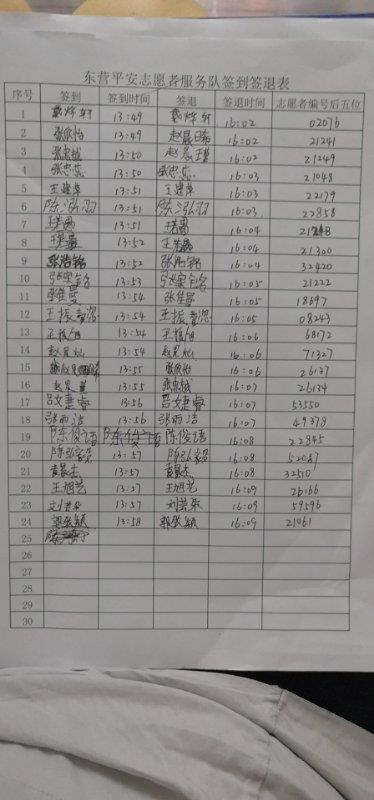 东营平安志愿者服务队签到签退表
序号 签到 签到时间 签退 签退时间 志愿者编号后五位
1 戴烨轩 13:49 戴烨轩 16:02 02076
2 张欣怡 13:49 赵晨曦 16:02 21241
3 张忠城 13:50 16:02 21249
4 张忠蕊 13:50 张忠蕊 16:03 21048
5 王建荣 13:51 王建荣 16:03 22179
6 陈泓羽 13:51 陈泓羽 16:03 22858
7 13:51 16:04
8 13:52 16:04 21300
9 张浩铭 13:52 张浩铭 16:04 32420
10 13:53 16:05 21222
11 张佳雪 13:54 张佳雪 16:05 18697
12 王振 13:54 王振 16:05 08243
13 13:54 16:06 68172
14 13:54 16:06 71327
15 13:55 张欣怡 16:06 26137
16 13:55 张忠城 16:07 26134
17 吕婕睿 13:56 吕婕睿 16:07 53550
18 张雨洁 13:56 张雨洁 16:07 49378
19 陈俊语 陈俊语 陈俊语 16:08 22845
20 陈弘毅 13:57 陈弘毅 16:08 52087
21 袁晨杰 13:57 袁晨杰 16:08 32510
22 王旭艺 13:57 王旭艺 16:09 26166
23 刘芸朵 13:57 刘芸朵 16:09 59596
24 郭张颖 13:58 郭张颖 16:09 21061
25
26
27
28
29
30